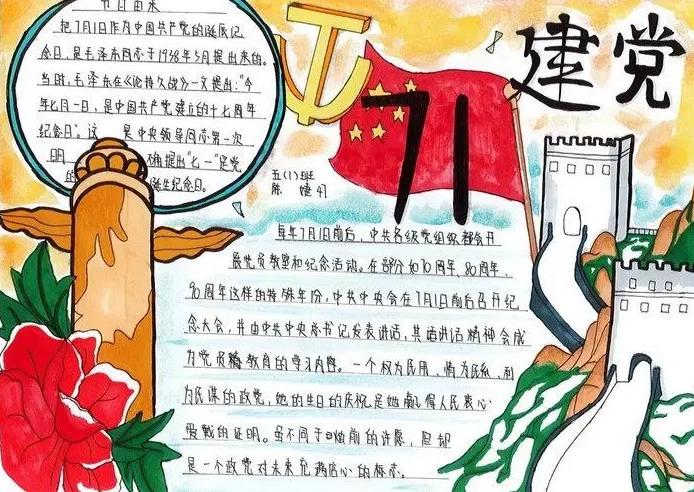 节日由来
把7月1日作为中国共产党的诞辰纪
念日,是毛泽东同志于1938年5月提出来的。
当时,毛泽东在《论持久战》一文提出:“今
年七月一日,是中国共产党建立的十七周年
纪念日”。这 是中央领导同志第一次
明 确提出“七一”是党
的 诞生纪念日。
建党
71
五(1)班
陈
每年7月1日前后,中共各级党组织都会开
展党员教育和纪念活动。在部分如70周年、80周年、
90周年这样的特殊年份,中共中央会在7月1日前后召开纪
念大会,并由中共中央总书记发表讲话,其讲话精神会成
为党员教育的学习内容。一个权为民用、情为民系、利
为民谋的政党,她的生日的庆祝是她赢得人民衷心
爱戴的证明。虽不同于 前的许愿,但却
是一个政党对未来充满信心的标志。